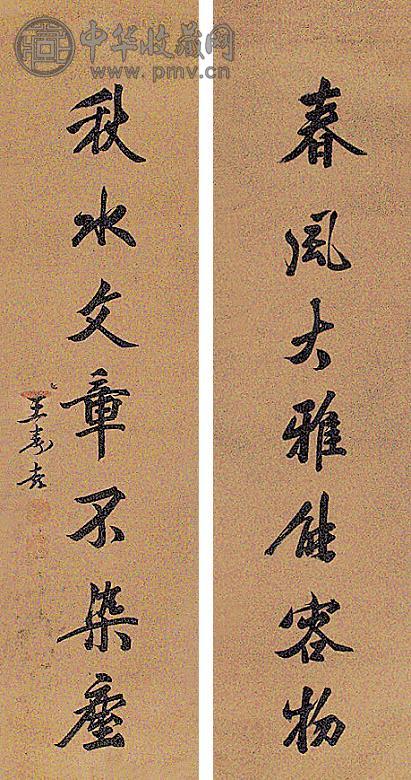 中华收藏网
www.pmv.cn
春风大雅能容物
秋水文章不染塵
王壽